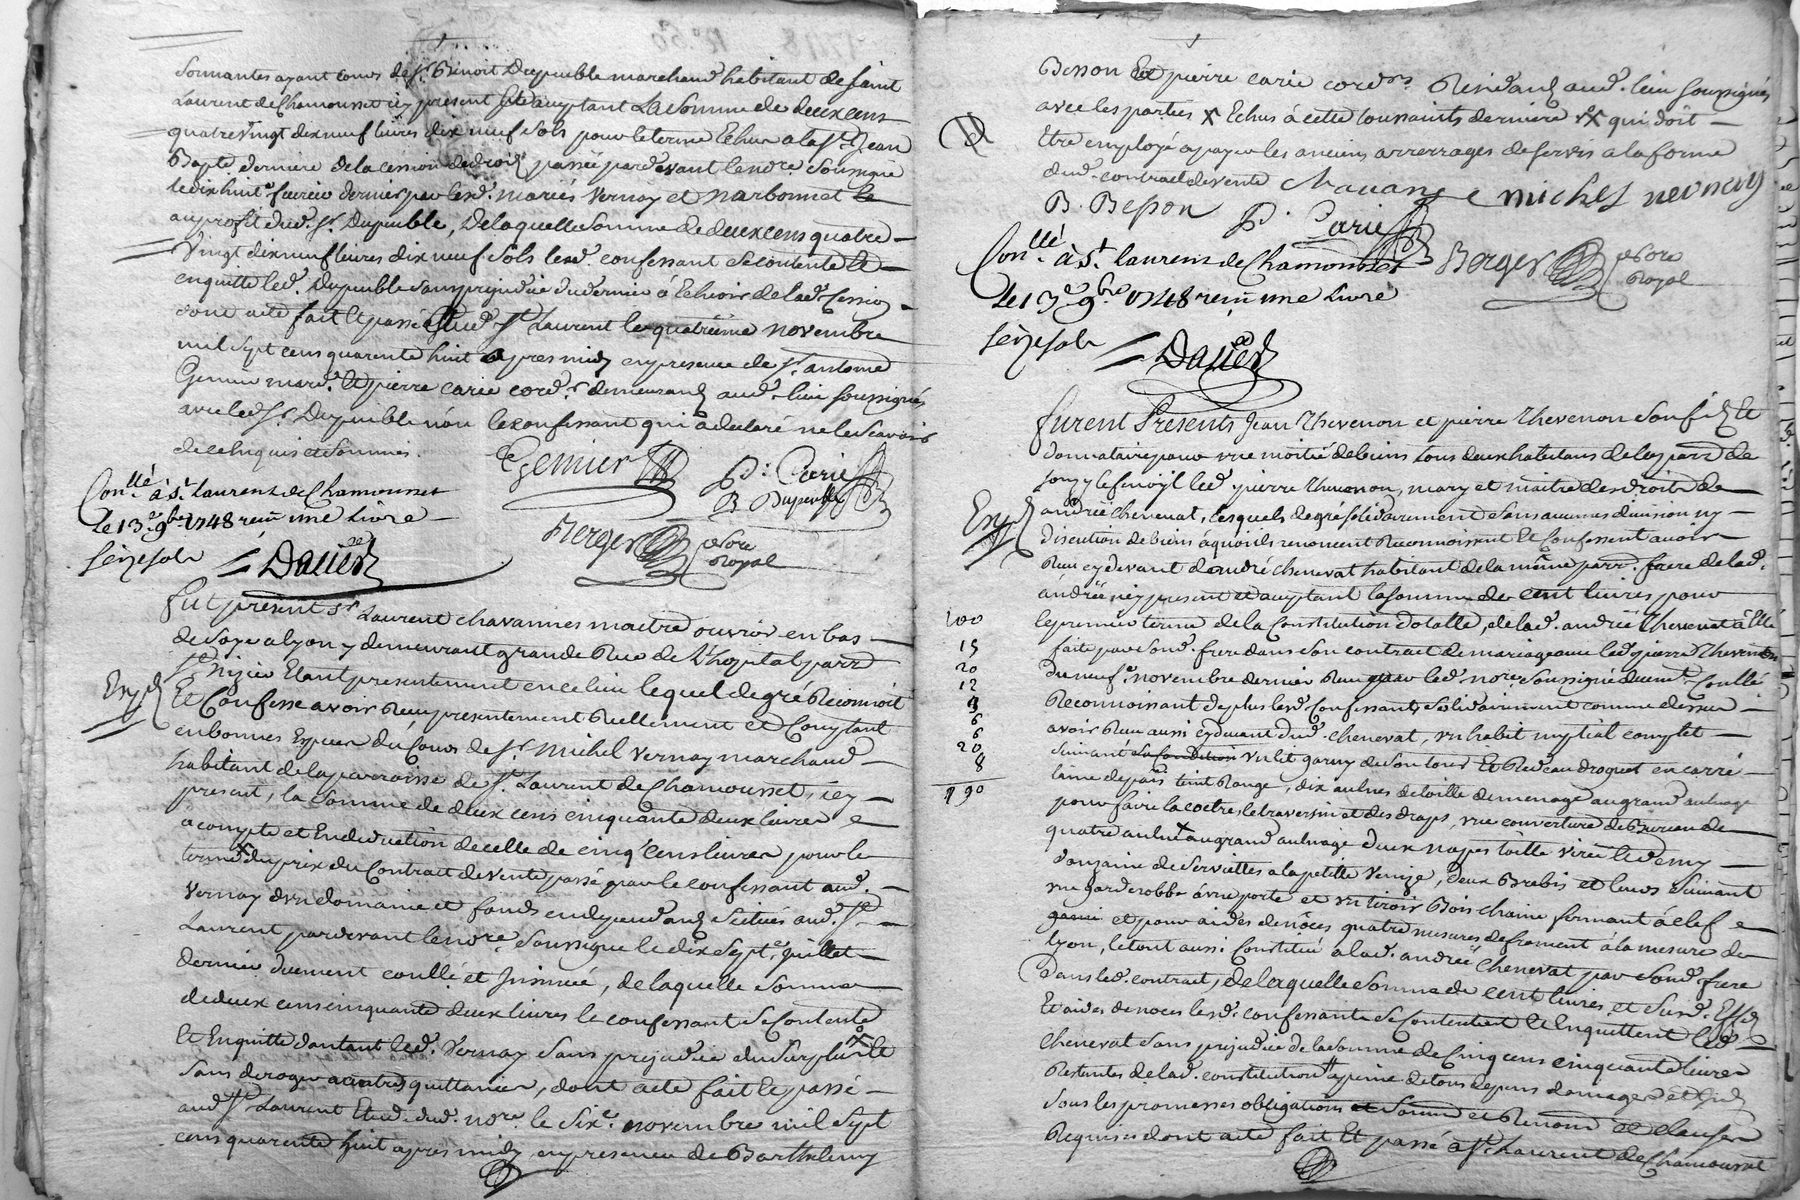 Sonnantes ayant cours de Sr. Benoit Dupuible marchand habitant de saint
Laurent de Chamousset icy present et acceptant La somme de deux cens
quatrevingt dix neuf livres dix neuf sols pour le terme Echu a la St. Jean
Bapte. derniere de la cession de droits passée pardevant le nore. soussigné
le dix huit fevrier dernier par lesd. mariés Vernay et Narbonnet
au profit dud. Sr. Dupuible, de laquelle somme de deux cens quatre
Vingt dix neuf livres dix neuf sols lesd. confessant se contente et
en quitte led. Dupuible sans prejudice du dernier à Echoir de lad. Cession
dont acte fait et passé aud. St. Laurent le quatrième novembre
mil sept cens quarente huit apres midy en presence de Sr. antoine
Gemier mard. et pierre carie cord. demeurans aud. lieu soussignés
avec led Sr. Dupuible non le confessant qui a declaré ne le scavoir
de ce enquis et sommés.
Gemier P. Carie
B Dupuible
Conllé à St. laurens de Chamousset
le 13e. 9bre 1748 reçu une livre
seize sols Dalier
Berger nore Royal
Fut present Sr. Laurent chavannes maitre ouvrier en bas
de soye a lyon y demeurant grande Rue de L'hopital parr.
St. nizier Etant presentement en ce lieu lequel de gré Reconnoit
Exp.
Et Confesse avoir Reçu presentement Reellement et Comptant
en bonnes Especes du Cours de Sr. Michel Vernay marchand
habitant de la parroisse de St. Laurent de Chamousset, icy
present, la somme de deux cens cinquante deux livres
a compte et En deduction de celle de cinq Cens livres pour le
terme X du prix du Contrat de vente passé par le confessant aud.
Vernay d'un domaine et fonds en dependans scitués aud. St.
Laurent pardevant le nore. soussigné le dix sept. juillet
dernier duement conllé et Insinué, de laquelle somme
de deux cens cinquante deux livres le confessant se Contente
Et Enquitte d'autant led. Vernay sans prejudice du surplus X et
sans deroger quittances, dont acte fait et passé
aud. St. Laurent Etude dud. nore. le six. novembre mil sept
cens quarente huit apres midy en presence de Barthelemy
Besson Et pierre carie cord. Residans aud. lieu soussignés
avec les parties X Echus à cette toussaints derniere X qui doit
Etre employé a payer les anciens arrerages de servis a la forme
dud. contrat de vente Chavanne Michel vernay
B. Besson P. Carie
Conllé à St. laurens de Chamousset
Berger nore Royal
le 13e. 9bre 1748 reçu une livre
seize sols Dalier
Furent Presents Jean Thevenon et pierre Thevenon son fils Et
donnataire pour une moitié de biens tous deux habitans de la parr. de
led. pierre Thevenon, mary et maitre des droits de
Exp.
andrée Chenevat, Lesquels de gré solidairement sans aucunes division ny
discution de biens à quoi ils renoncent Reconnoissent Et Confessent avoir
Reçu cy devant d'andré Chenevat habitant de la même parr. frere de lad.
andrée icy present et acceptant la somme de cent livres pour
100 le premier terme de la Constitution dotalle, de lad. andrée Chenevat à Elle
15 faite par sond. frere dans son contrat de mariage avec led pierre Thevenon
20 du neuf. novembre dernier Reçu par led. nore soussigné duemt. Conllé.
12 Reconnoissant de plus lesd. Confessants solidairement comme dessus
3
6 avoir Reçu aussi cy devant dud. Chenevat, un habit nuptial complet
6
20 Suivant sa Condition un lit garny de son tour Et Rideau droguet en carré
8 laine de païs teint Rouge, dix aulnes de toille de menage au grand aulnage
190 pour faire la coetre, le traversin et des draps, une couverture de Bureau de
quatre aulnes X au grand aulnage deux napes toille virée, la demy
douzaine de serviettes a la petite Venize, deux Brebis et leurs suivant
une garderobbe à une porte et un tiroir Bois chaine fermant à clef
garni et pour aides de nôces quatre mesures de froment à la mesure de
lyon, le tout aussi Constitué a lad. andrée Chenevat par sond. frere
Dans led. contrat, de laquelle somme de cent livres et susd. Effets
Et aides de noces lesd. confessants se Contentent et Enquittent led.
Chenevat sans prejudice de la somme de Cinq cens cinquante livres
Restentes de lad. constitution a peine de tous depens domages et
sous les promesses obligations soumions Renond. et clauses
Requises dont acte fait Et passé a St. Laurent de Chamousset